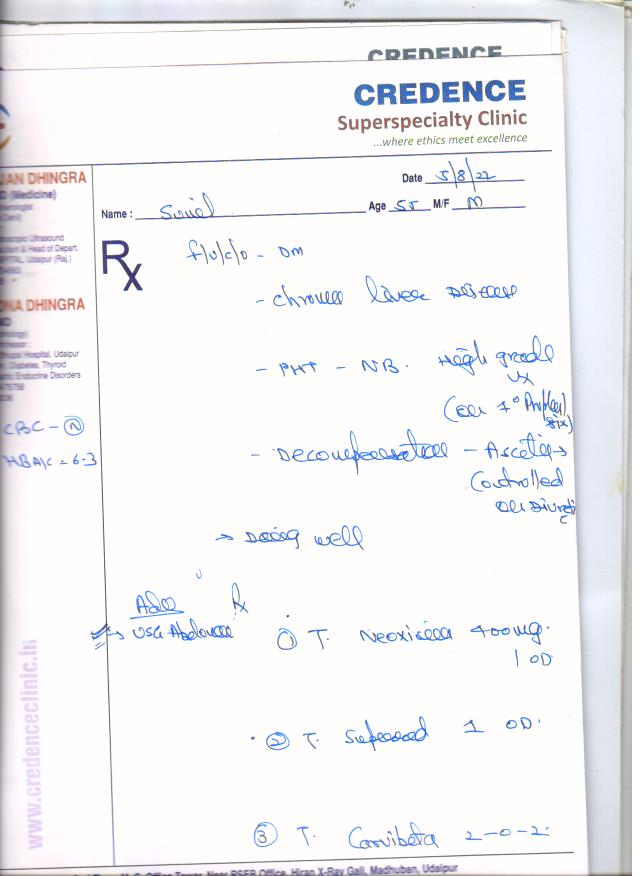 CREDENCE
CREDENCE
Superspecialty Clinic
...where ethics meet excellence
JAN DHINGRA
(Medicine)
Ultrasound
& Head of Depart.
Udaipur (Raj.)
NA DHINGRA
Hospital, Udaipur
Diabetes, Thyroid
Endocrine Disorders
Date 5/8/22
Name :
Age 55 M/F M
Rx
f/u/c/o - DM
- chronic liver disease
- PHT - NB. High grade
Vx
(on 1° Prophylaxis)
CBC - N
HBA1C = 6.3
- Decompensation - Ascites
Controlled
on Diuretic
→ Doing well
Adv Rx
→ USG Abdomen
① T. 400mg.
1 OD
② T. 1 OD.
③ T. Carvibeta 2-0-2
www.credenceclinic.in
Office, Hiran X-Ray Gali, Madhuban, Udaipur